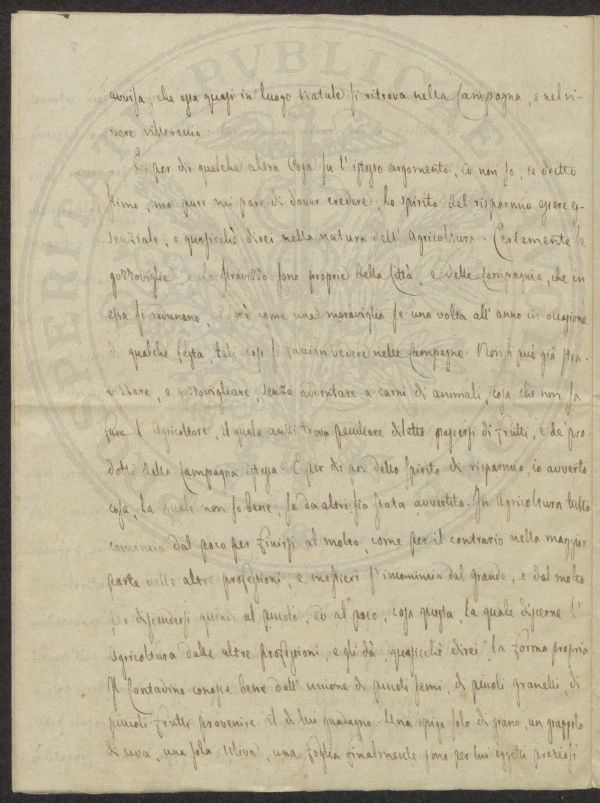 avvisa, che essa quasi in luogo natale si ritrova nella Campagna, e nel vi-
vere villereccio.
E per dir qualche altra cosa su l'istesso argomento, io non so, se dritto
stimo, ma pure mi pare di dover credere, lo spirito del risparmio essere es-
senziale, e quasicchè direi nella natura dell'Agricoltura. Certamente le
gozzoviglie e lo stravizzo sono proprie della Città, e delle Compagnie, che in
essa si radunano, come una maraviglia se una volta all'anno in occasione
di qualche festa, tali cose si faccian vedere nelle Campagne. Non si può già stra-
vizzare, e gozzovigliare, senza addentare a carni di animali, cosa che non fa
l'Agricoltore, il quale anzi trova peculiare diletto di frutti, e de' pro-
dotti della Campagna istessa. E per dir poi dello spirito di risparmio, io avverto
cosa, la quale non so bene, se da altri sia stata avvertita. In Agricoltura tutto
comincia dal poco per finirsi al molto, come per il contrario nella maggior
parte delle altre professioni, e mestieri s'incomincia dal grande, e dal molto
per discendersi quindi al piccolo, ed al poco, cosa questa, la quale discerne l'
Agricoltura dalle altre professioni, e gli dà, quasicchè direi, la forma propria
Il Contadino conosce bene dall'unione di piccoli semi, di piccoli granelli, di
piccioli frutti provenire il di lui guadagno. Una spiga sola di grano, un grappolo
di uva, una sola uliva, una foglia finalmente sono per lui oggetti preziosi
SPERITATI PUBLICAE